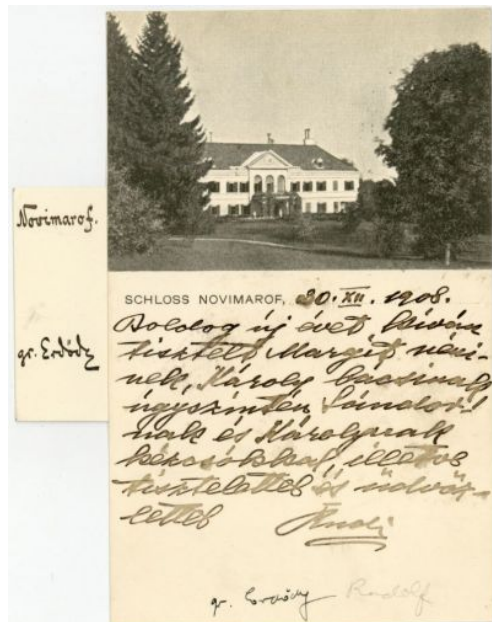 Novimarof.
gr. Erdődy
SCHLOSS NOVIMAROF, 30. XII. 1908.
Boldog új évet kíván
tisztelt Margit néni-
nek, Károly bacsinak
úgyszintén Sándor-
nak és Károlynak
kézcsókkal, illetve
tisztelettel és üdvöz-
lettel
Rudi
gr. Erdődy Rudolf